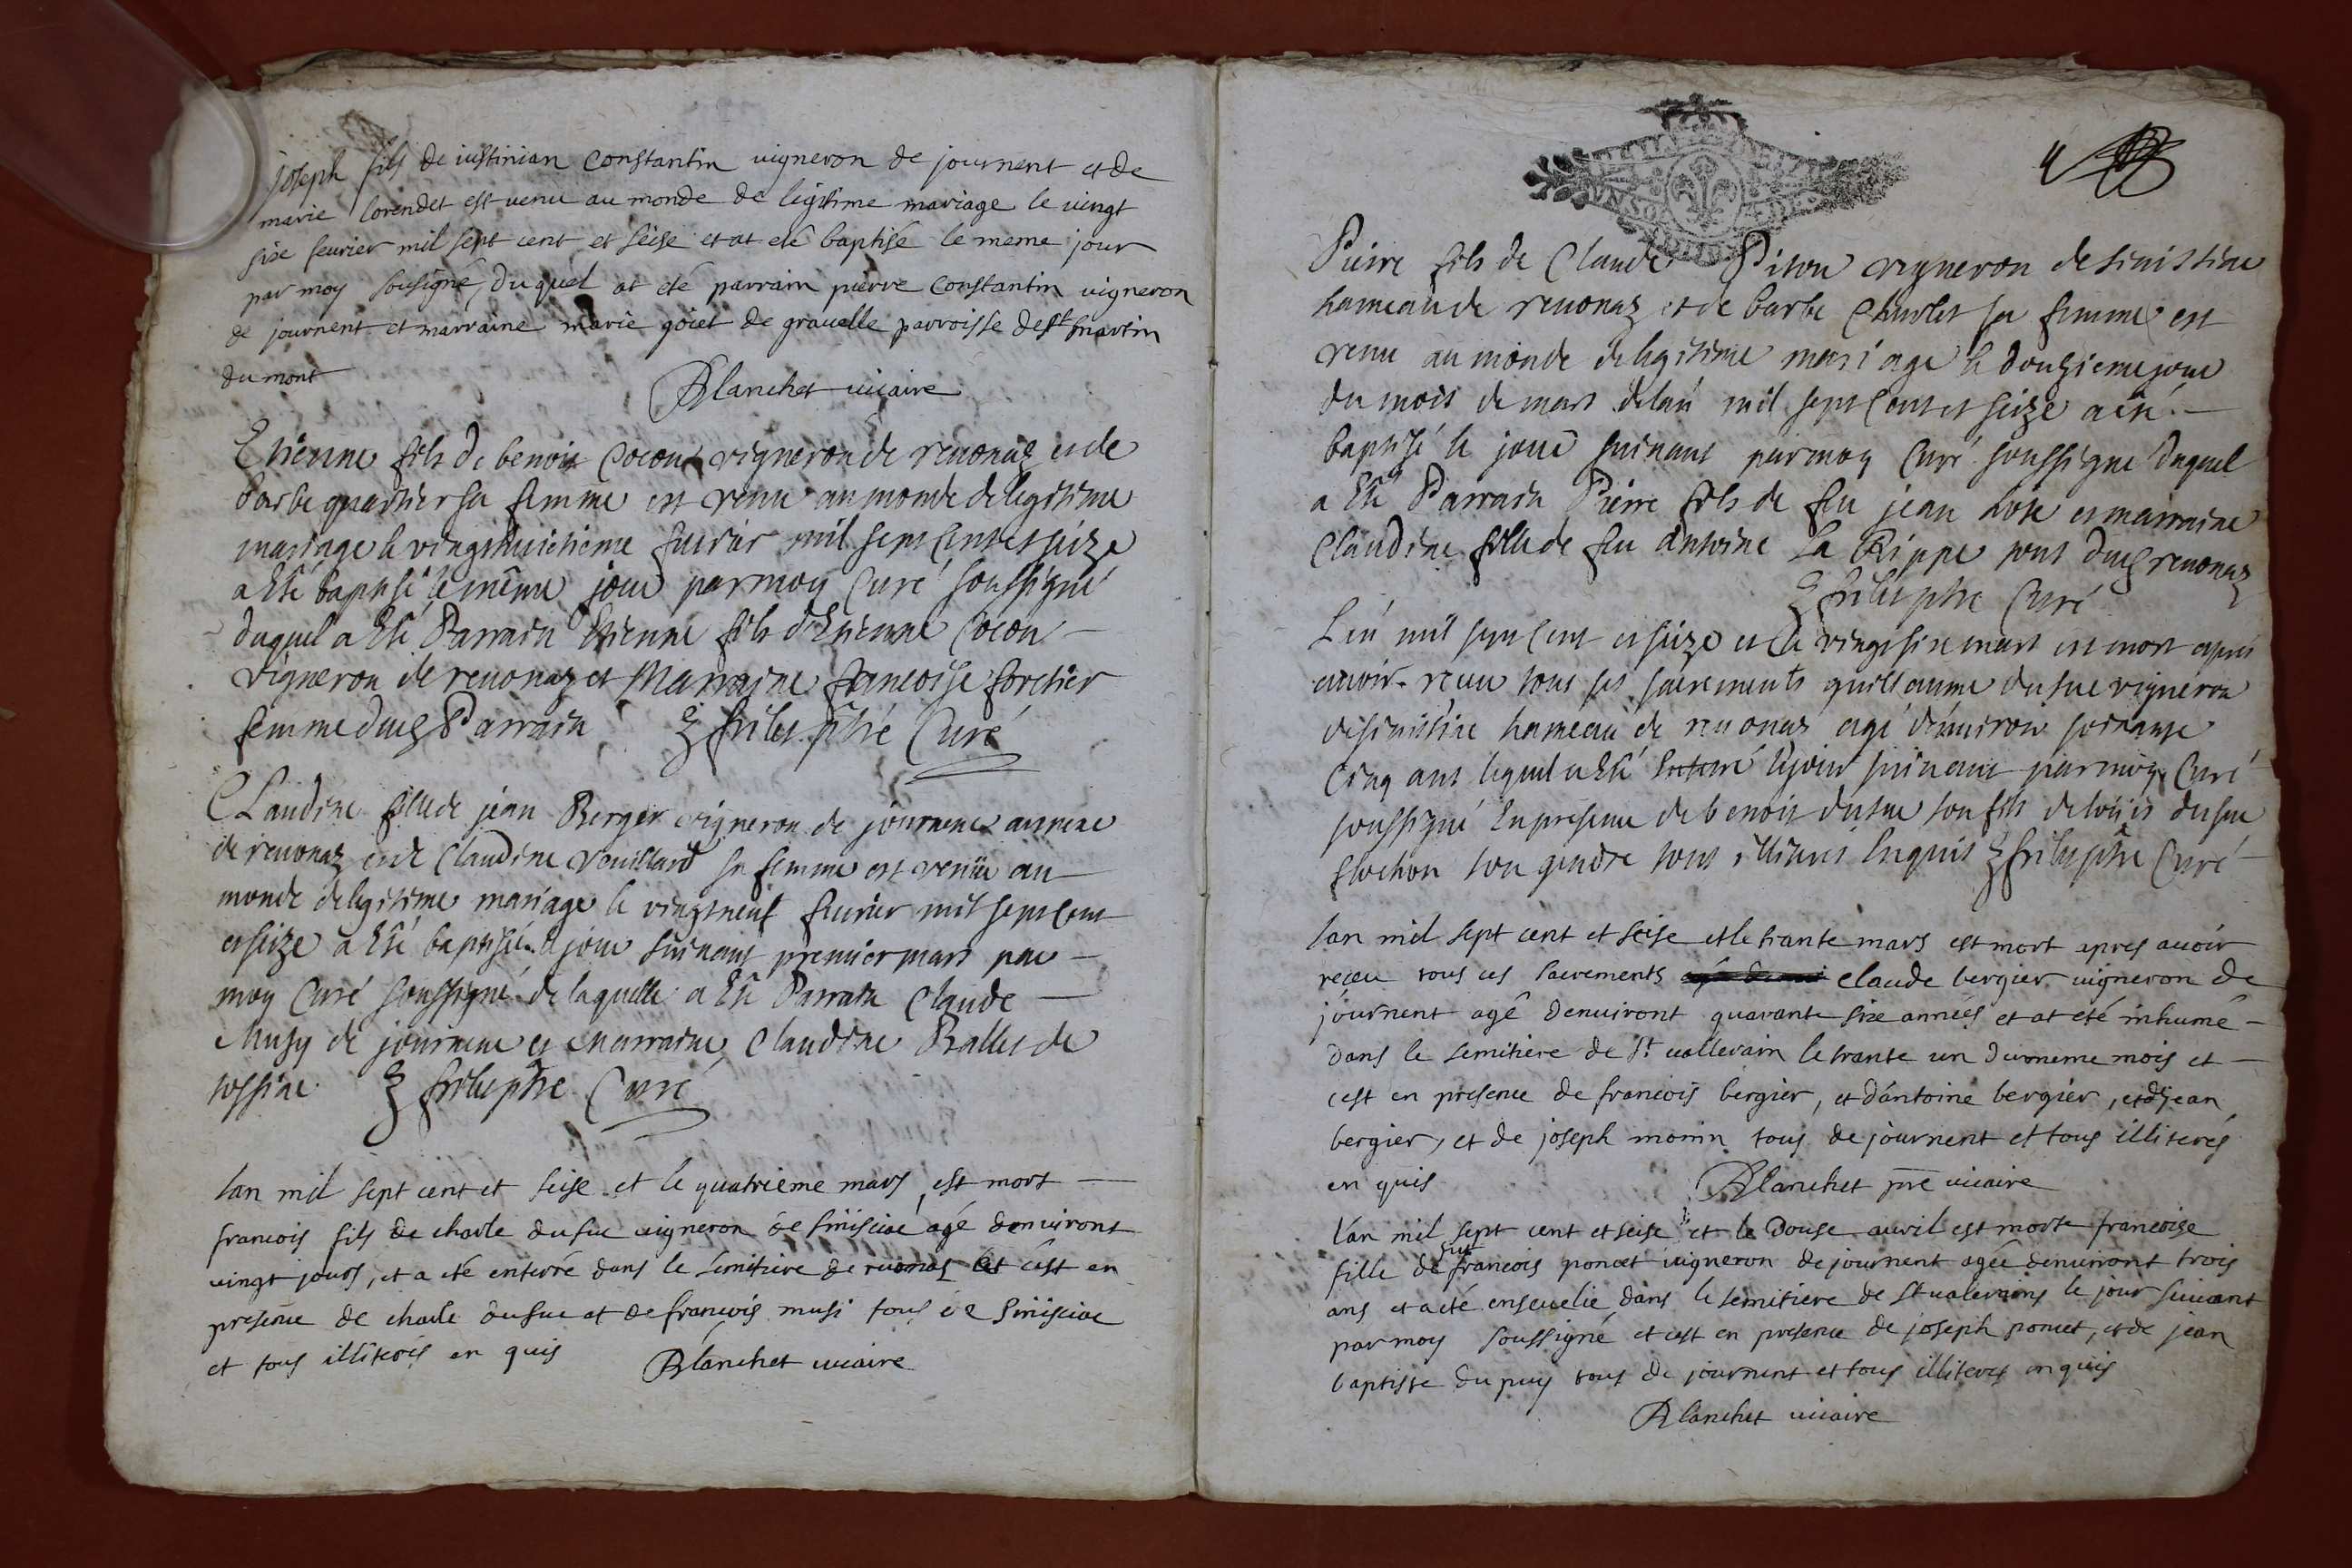 joseph fils de iustinian constantin vigneron de journent et de
marie corendet est venu au monde de legitime mariage le vingt
sixe feurier mil sept cent et seise et at eté baptisé le meme jour
par moy sousigné, du quel at eté parrain pierre constantin vigneron
de journent et marraine marie goiet de grauelle parroisse de st martin
du mont
Blanchet uicaire
Etienne fils de benoit Cocon vigneron de reuonaz et de
barbe quartier sa femme est venu au monde de legitime
mariage le vingthuictieme feurier mil sept cent et seize
a esté baptisé le même jour par moy Curé soussigné
duquel a esté Parrain Etienne fils d'Etienne Cocon
vigneron de reuonaz et Marraine francoise foretier
femme dud Parrain frilet ptre Curé
CLaudine fille de jean Berger vigneron de journent annexe
de reuonaz et de Claudine Veuillard sa femme est venüe au
monde de legitime mariage le vingtneuf feurier mil sept cent
et seize a esté baptisée le jour suiuant premier mars par
moy Curé soussigné de laquelle a esté Parrain Claude
Musy de journent et Marraine Claudine Ballet de
tossiat frilet ptre Curé
lan mil sept cent et seise et le quatrieme mars est mort
francois fils de charle dufuc uigneron de sinissiac agé denuiront
uingt jours, et a eté enterré dans le semitiere de reuonas et cest en
presence de charle dufuc et de francois musi tous de sinissiac
et tous illiterés en quis Blanchet uicaire
4
Pierre fils de Claude Piton vigneron de sinissiac
hameau de reuonaz et de barbe Charlet sa femme est
venu au monde de legitime mariage le douzieme jour
du mois de mars de lan mil sept cent et seize a esté
baptisé le jour suiuant par moy Curé soussigné duquel
a esté Parrain Pierre fils de feu jean et marraine
Claudine fille de feu Antoine La Rippe tous dud reuonaz
frilet ptre Curé
L'an mil sept cent et seize et le vingt six mars est mort apres
auoir receu tous ses sacrements guillaume dufuc vigneron
de sinissiac hameau de reuonaz agé d'enuiron soixante
Cinq ans lequel a esté enterré le jour suiuant par moy Curé
soussigné en presence de benoit dufuc son fils de loüis dufuc
son gendre tous illiterés enquis frilet ptre Curé
lan mil sept cent et seise et le trante mars est mort apres auoir
reçeu tous ces sacrements claude bergier uigneron de
journent agé denuiront quarante sixe années et at eté inhumé
dans le semitiere de st uallerain le trante un du meme mois et
cest en presence de francois bergier, et dantoine bergier, et de jean
bergier, et de joseph monin tous de journent et tous illiterés
en quis Blanchet pre uicaire
l'an mil sept cent et seise et le douse auril est morte francoise
fille de fut francois poncet uigneron de journent agée denuiront trois
ans et a eté enseuelie dans le semitiere de st ualerains le jour suiuant
par moy soussigné et cest en presence de joseph poncet, et de jean
baptiste du puy tous de journent et tous illiteres en quis
Blanchet uicaire